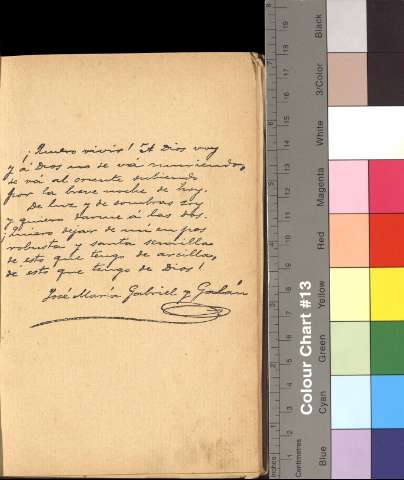 ¡Quiero vivir! A Dios voy
y á Dios no se vá muriendo,
se vá al oriente subiendo
por la breve noche de hoy.
De luz y de sombras soy
y quiero darme á las dos.
¡Quiero dejar de mí en pos
robusta y santa semilla
de esto que tengo de arcilla,
de esto que tengo de Dios!
José María Gabriel y Galán
Colour Chart #13
Blue
Cyan
Green
Yellow
Red
Magenta
White
3/Color
Black
Inches
Centimetres